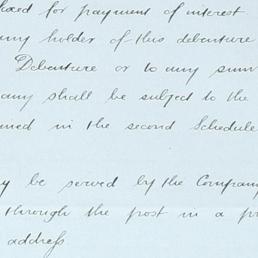 for payment of interest
any holder of this debenture
Debenture or to any sum
any shall be subject to the
in the second Schedule
be served by the Company
through the post in a
address